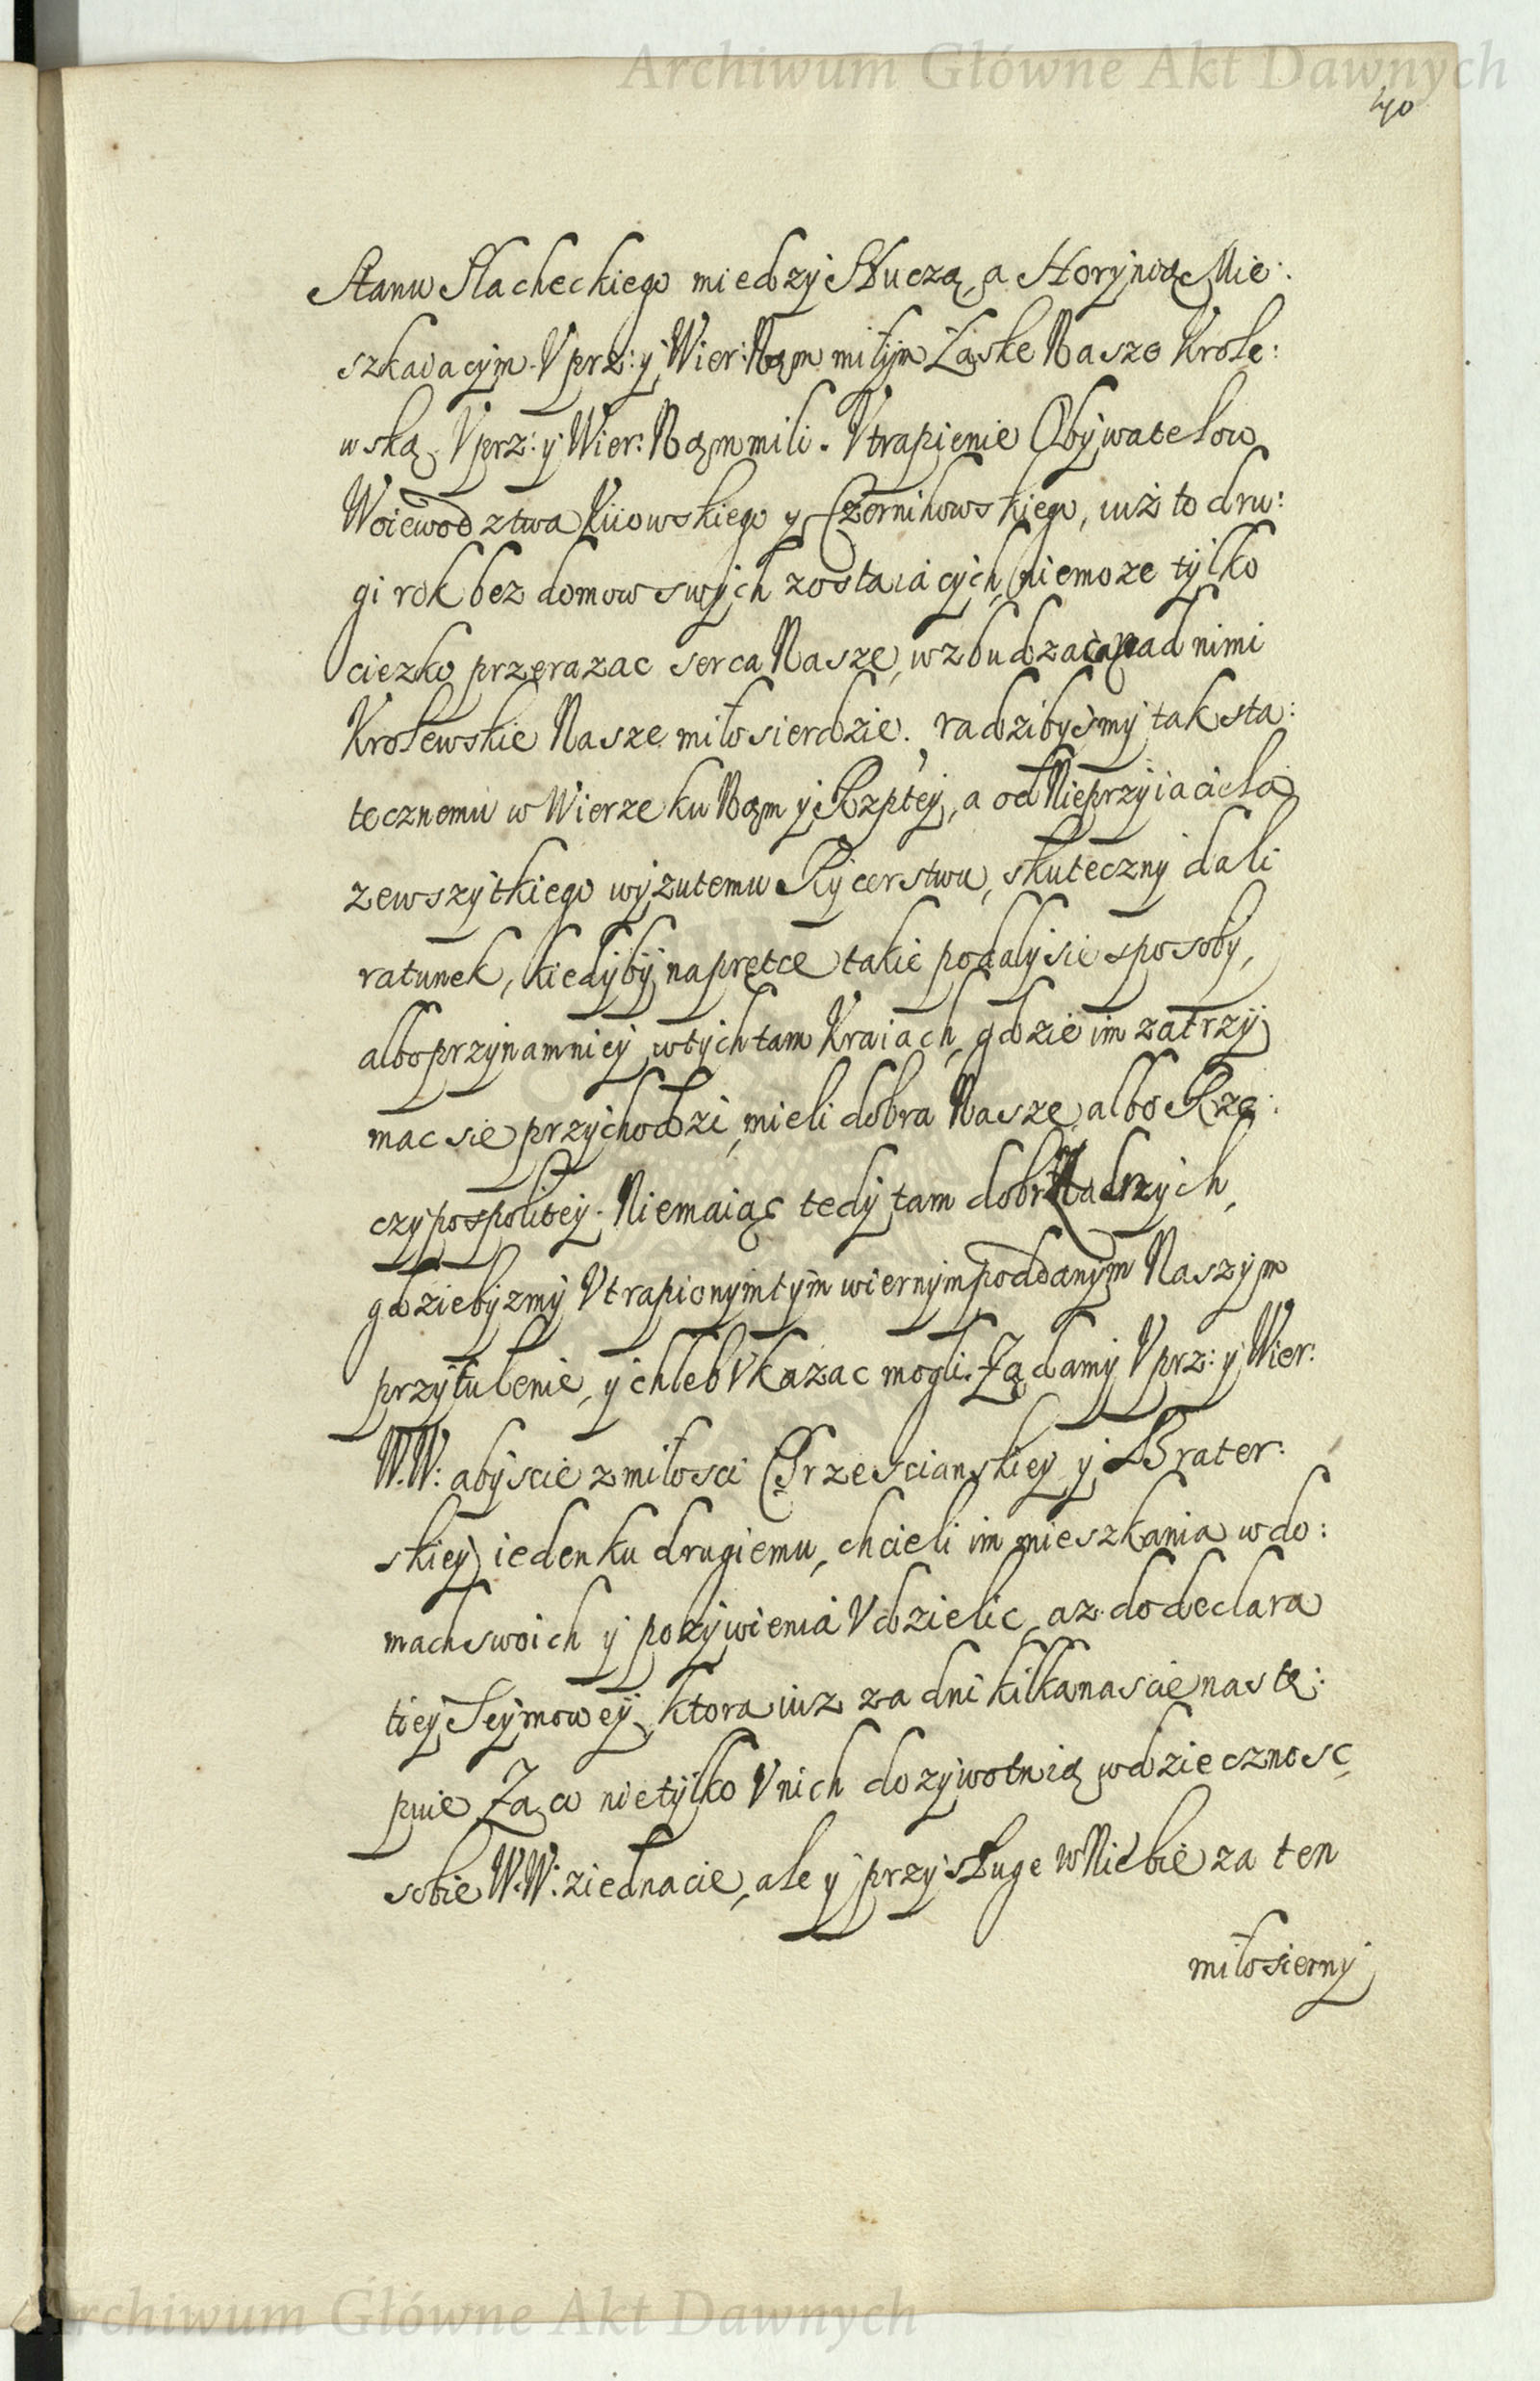 Archiwum Główne Akt Dawnych
40
Stanu Slacheckiego miedzy Słuczą a Horyniąę Mie:
szkaiacym. Vprz: y Wier: Nąm miłym Łaske Nasze Krole:
wską. Vprz: y Wier: Nąm mili. Vtrapienie Obywatelow
Woiewodztwa Kiiowskiego y Czernihowskiego, iuż to dru:
gi rok bez domow swych zostaiących, niemoze tylko
ciezko przerazac serca Nasze, wzbudzaiąc nad nimi
Krolewskie Nasze miłosierdzie. radzibyśmy tak sta:
tecznemu w Wierze ku Nąm y Rzptey, a od Nieprzyiaciela
zewszytkiego wyzutemu Rycerstwu, skuteczny dali
ratunek, kiedyby naprętce takie podały sie sposoby,
albo przynamniey w tych tam Kraiach, gdzie im zatrzy
mac sie przychodzi, mieli dobra Nasze, albo Rze:
czypospolitey. Niemaiąc tedy tam dobr żadnych,
gdziebyzmy Vtrapionym tym wiernym poddanym Naszym
przytulenie, y chleb Vkazac mogli. Żądamy Vprz: y Wier:
W.W: abyscie z miłosci Chrzescianskiey y Brater:
skiey ieden ku drugiemu, chcieli im mieszkania w do:
mach swoich y pozywienia Vdzielic, az do declara
tiey Seymowey, ktora iuz za dni kilkanascie nastę:
puie Za co nietylko V nich dozywotnią wdziecznosc
sobie W.W: ziednacie, ale y przysługe w Niebie za ten
miłosierny
Archiwum Główne Akt Dawnych